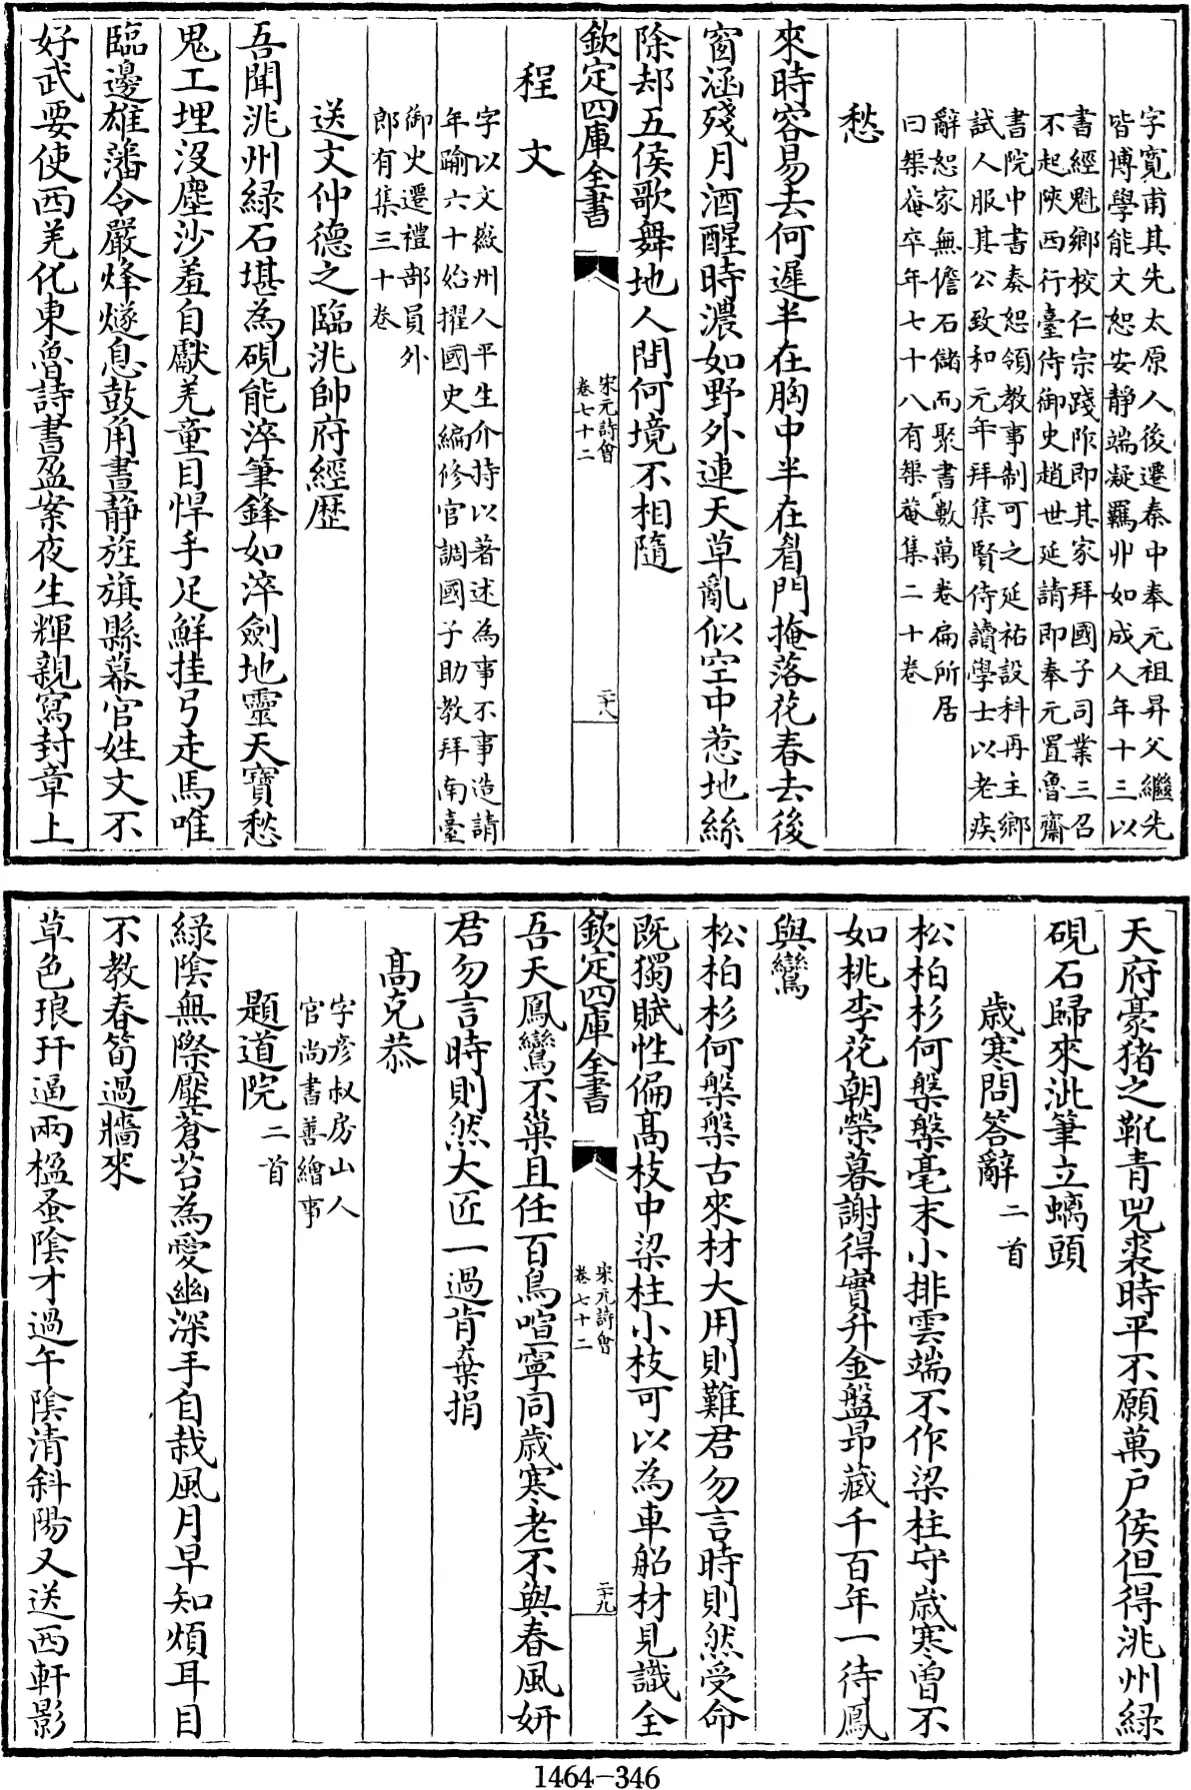 字寬甫其先太原人後遷秦中奉元祖昇父繼先
皆博學能文恕安靜端凝羈丱如成人年十三以
書經魁鄉校仁宗踐阼即其家拜國子司業三召
不起陝西行臺侍御史趙世延請即奉元置魯齋
書院中書奏恕領教事制可之延祐設科再主鄉
試人服其公致和元年拜集賢侍讀學士以老疾
辭恕家無儋石儲而聚書數萬卷扁所居
曰榘菴卒年七十八有榘菴集二十卷
愁
來時容易去何遲半在胸中半在眉門掩落花春去後
窗涵殘月酒醒時濃如野外連天草亂似空中惹地絲
除却五侯歌舞地人間何境不相隨
欽定四庫全書
宋元詩會
卷七十二
二十八
程文
字以文徽州人平生介持以著述為事不事造請
年踰六十始擢國史編修官調國子助教拜南臺
御史遷禮部員外
郎有集三十卷
送文仲德之臨洮帥府經歷
吾聞洮州綠石堪為硯能淬筆鋒如淬劍地靈天寶愁
鬼工埋沒塵沙羞自獻羌童目悍手足鮮挂弓走馬唯
臨邊雄藩令嚴烽燧息鼓角晝靜旌旗縣幕官姓文不
好武要使西羌化東魯詩書盈案夜生輝親寫封章上
天府豪豬之靴青兕裘時平不願萬戶侯但得洮州綠
硯石歸來泚筆立螭頭
歲寒問答辭二首
松柏杉何槃槃毫末小排雲端不作梁柱守歲寒曾不
如桃李花朝榮暮謝得實升金盤昂藏千百年一待鳳
與鸞
松柏杉何槃槃古來材大用則難君勿言時則然受命
既獨賦性偏高枝中梁柱小枝可以為車船材見識全
欽定四庫全書
宋元詩會
卷七十二
二十九
吾天鳳鸞不巢且任百鳥喧寧同歲寒老不與春風妍
君勿言時則然大匠一過肯棄捐
高克恭
字彥叔房山人
官尚書善繪事
題道院二首
綠陰無際壓蒼苔為愛幽深手自栽風月早知煩耳目
不教春筍過牆來
草色琅玕逼兩楹蚤陰才過午陰清斜陽又送西軒影
1464-346